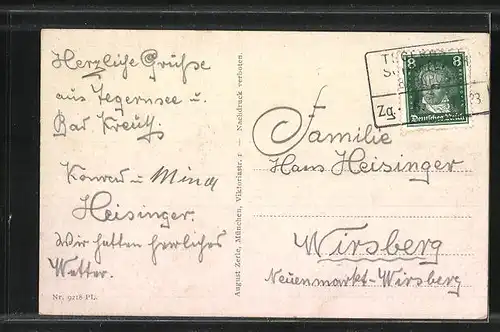 Herzliche Grüße
aus Tegernsee u.
Bad Kreuth.
Konrad u. Mina
Heisinger.
Wir hatten herrliches
Wetter.
Nr. 9218 PL.
August Zerle, München, Viktoriastr. 1 — Nachdruck verboten.
8 8
Deutsches Reich
Zg.
Familie
Hans Heisinger
Wirsberg
Neuenmarkt-Wirsberg